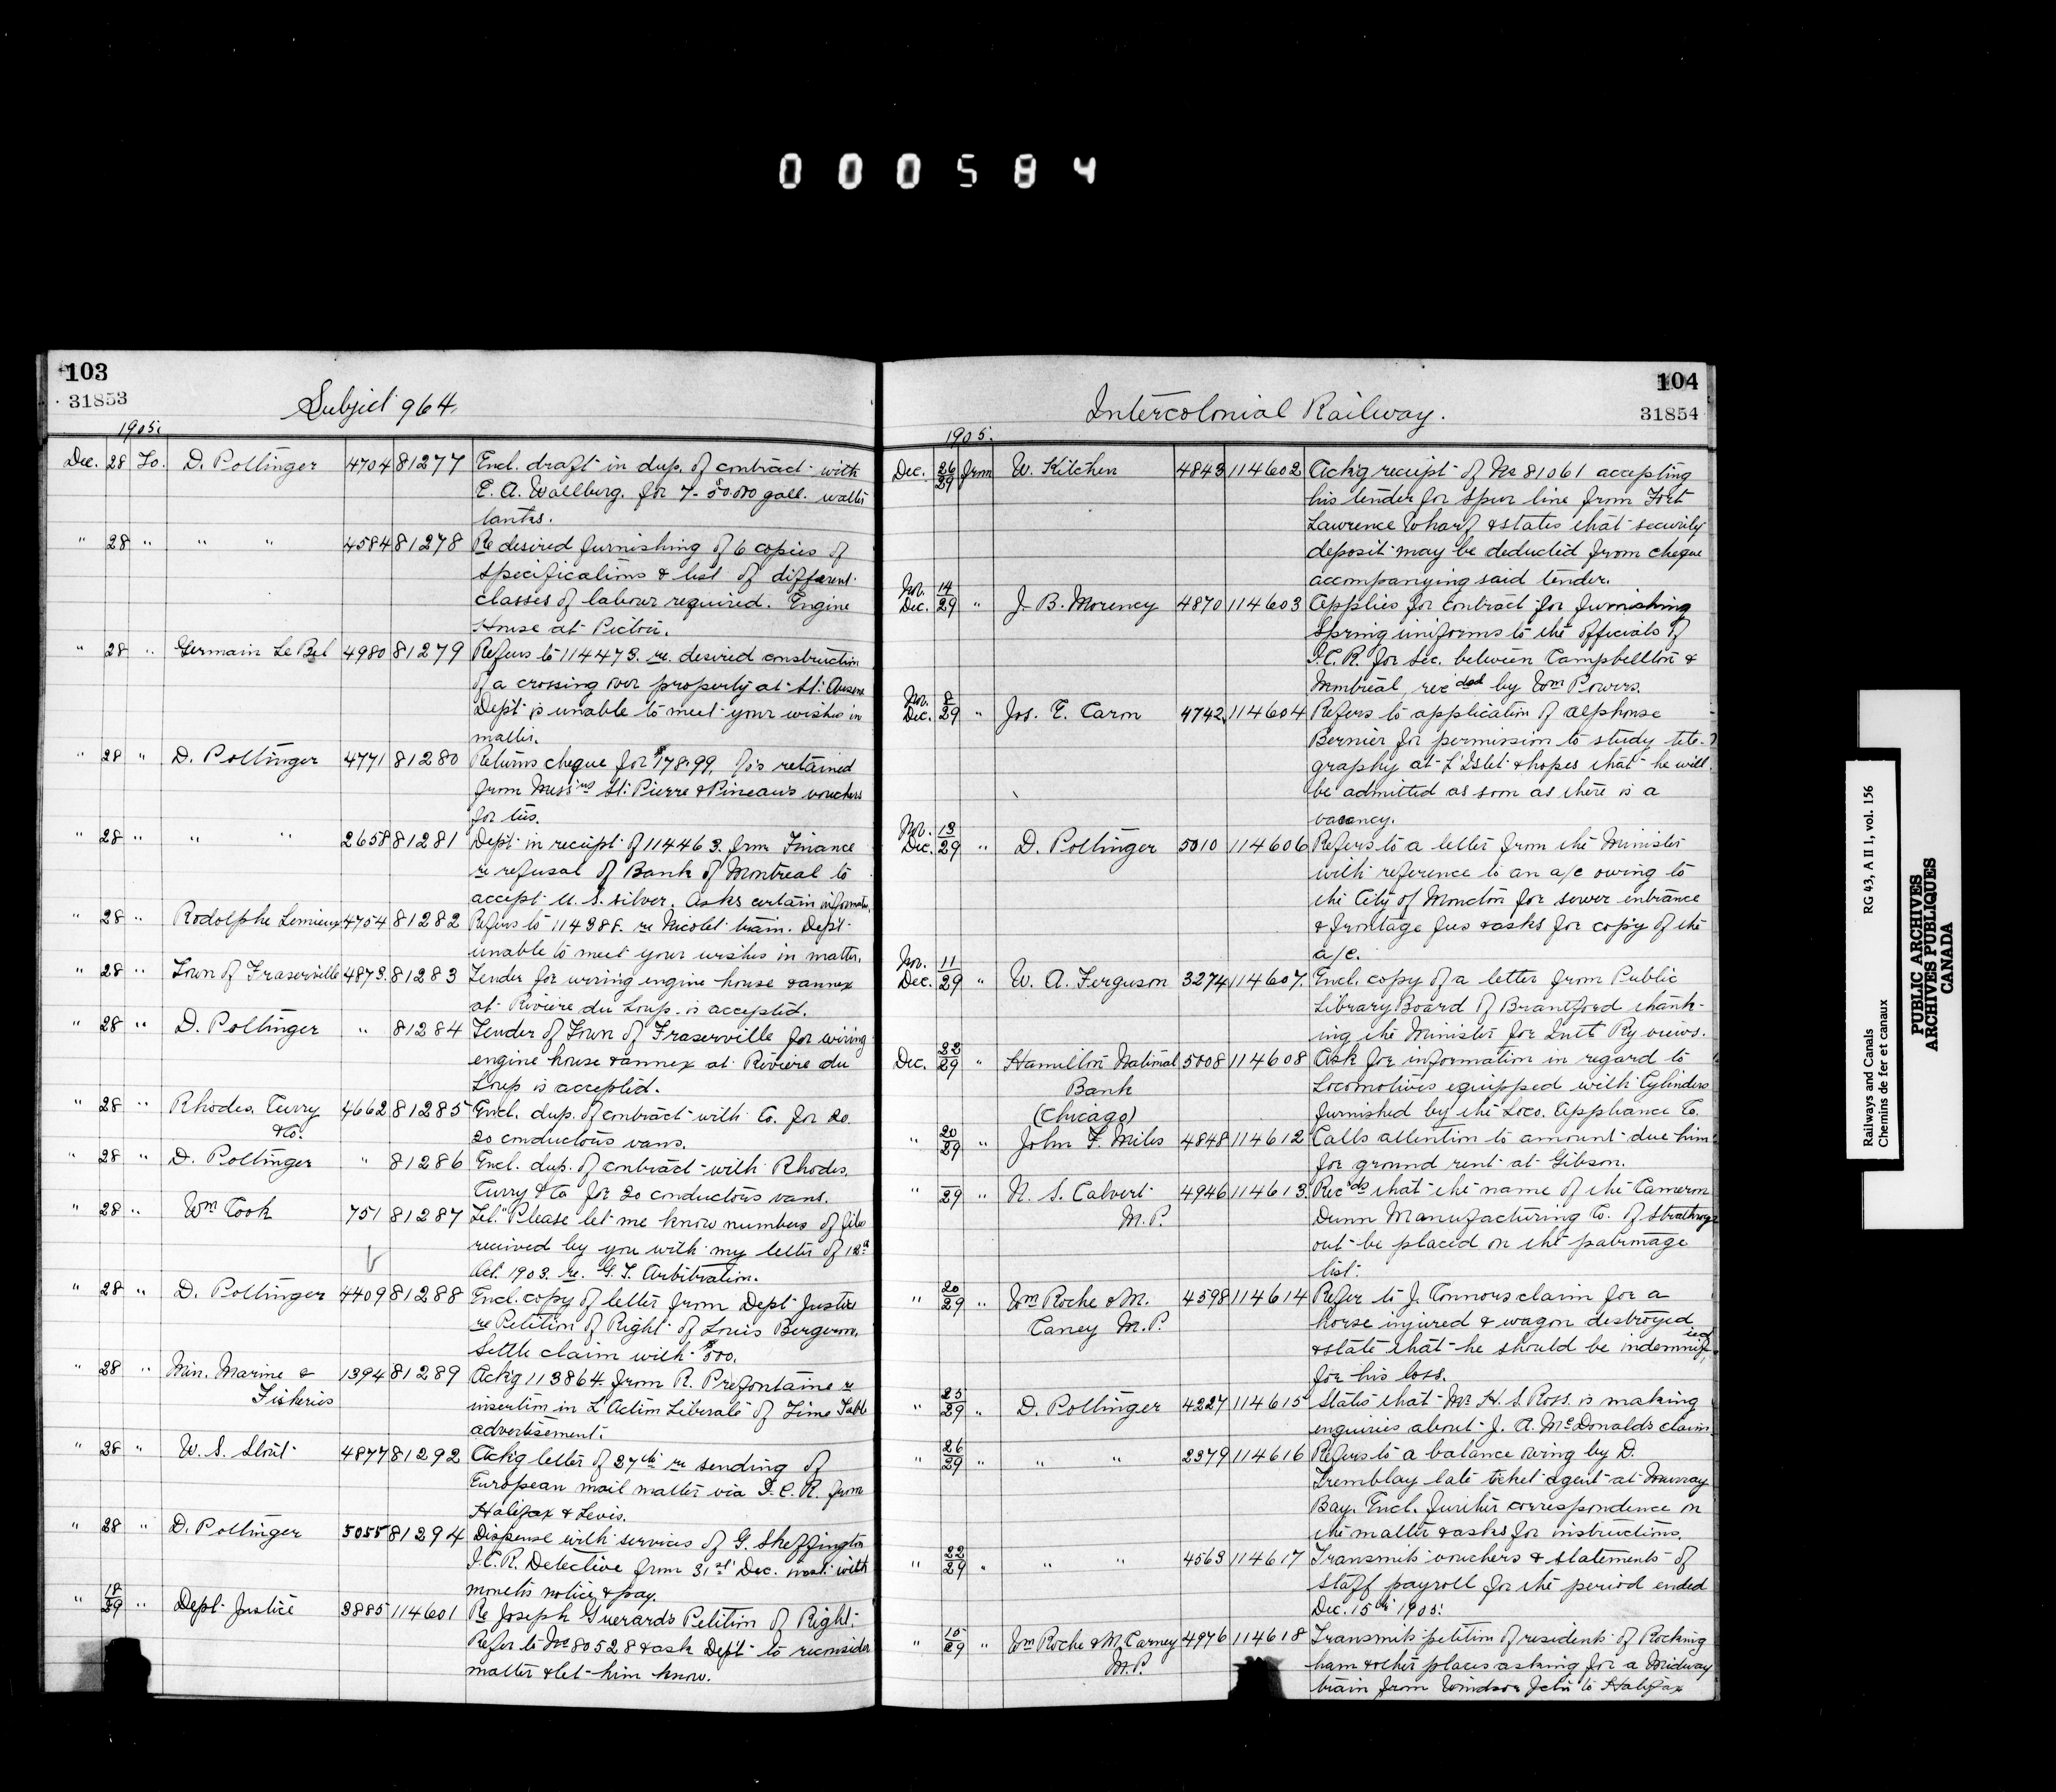 000584
103
31853
Subject 964.
1905.
Dec. 28 To. D. Pottinger 4704 81277 Encl. draft in dup. of contract with
E. A. Wallburg. for 7- 50.000 gall. water
tanks.
" 28 " " " 4584 81278 Re desired furnishing of 6 copies of
specifications & list of different
classes of labour required. Engine
House at Pictou.
" 28 " Germain Le Bel 4980 81279 Refers to 114473. re. desired construction
of a crossing over property at St.
Dept is unable to meet your wishes in
matter.
" 28 " D. Pottinger 4771 81280 Returns cheque for $178.99. retained
from Mess'rs St. Pierre & Pineau's vouchers
for ties.
" 28 " " " 2658 81281 Dept. in receipt of 114463. from Finance
re refusal of Bank of Montreal to
accept U. S. silver. Asks certain informatn.
" 28 " Rodolphe Lemieux 4754 81282 Refers to 114388. re Nicolet train. Dept.
unable to meet your wishes in matter.
" 28 " Town of Fraserville 4873. 81283 Tender for wiring engine house & annex
at Rivière du Loup. is accepted.
" 28 " D. Pottinger " 81284 Tender of Town of Fraserville for wiring
engine house & annex at Rivière du
Loup is accepted.
" 28 " Rhodes, Curry 4662 81285 Encl. dup. of contract with Co. for 20
& Co. 20 conductors vans.
" 28 " D. Pottinger " 81286 Encl. dup. of contract with Rhodes,
Curry & Co for 20 conductors vans.
" 28 " Wm Cook 751 81287 Tel. "Please let me know numbers of files
received by you with my letter of 12th
Oct. 1903. re. G. T. Arbitration.
" 28 " D. Pottinger 4409 81288 Encl. copy of letter from Dept Justice
re Petition of Right of Louis Bergeron.
Settle claim with $500.
" 28 " Min. Marine & 1394 81289 Ack'g 113864. from R. Prefontaine re
Fisheries insertion in L'Action Liberale of Time Table
advertisement.
" 28 " W. S. Stout 4877 81292 Ack'g letter of 27th re sending of
European mail matter via I. C. R. from
Halifax & Levis.
" 28 " D. Pottinger 5055 81294 Dispense with services of G. Skeffington
I.C.R. Detective from 31st Dec. inst. with
month's notice & pay.
" 18/29 " Dept. Justice 3885 114601 Re Joseph Guerard's Petition of Right.
Refer to No 80528 & ask Dept to reconsider
matter & let him know.
104
31854
Intercolonial Railway.
1905.
Dec. 26/29 from W. Kitchen 4843 114602 Ack'g receipt of No 81061 accepting
his tender for spur line from Fort
Lawrence Wharf & states that security
deposit may be deducted from cheque
accompanying said tender.
Nov. 14
Dec. 29 " J. B. Morency 4870 114603 Applies for contract for furnishing
Spring uniforms to the officials of
I.C.R. for Sec. between Campbellton &
Montreal, rec'ded by Wm Powers.
Nov. 8
Dec. 29 " Jos. E. Caron 4742. 114604 Refers to application of Alphonse
Bernier for permission to study tele-
graphy at L'Islet & hopes that he will
be admitted as soon as there is a
vacancy.
Nov. 13
Dec. 29 " D. Pottinger 5010 114606 Refers to a letter from the Minister
with reference to an a/c owing to
the City of Moncton for sewer entrance
& frontage fees & asks for copy of the
a/c.
Nov. 11
Dec. 29 " W. A. Ferguson 3274 114607. Encl. copy of a letter from Public
Library Board of Brantford thank-
ing the Minister for Intl. Ry views.
Dec. 22/29 " Hamilton National 5008 114608 Ask for information in regard to
Bank Locomotives equipped with Cylinders
(Chicago) furnished by the Loco. Appliance Co.
" 20/29 " John F. Miles 4848 114612 Calls attention to amount due him
for ground rent at Gibson.
" 29 " N. S. Calvert 4946 114613. Rec'ds that the name of the Cameron
M.P. Dunn Manufacturing Co. of Strathroy
out be placed on the patronage
list.
" 20/29 " Wm Roche & M. 4598 114614 Refer to J. Connors claim for a
Carney M.P. horse injured & wagon destroyed
& state that he should be indemnified
for his loss.
" 23/29 " D. Pottinger 4227 114615 States that Mr H. S. Ross. is making
enquiries about J. A. McDonald's claim.
" 26/29 " " " 2379 114616 Refers to a balance owing by D.
Tremblay late ticket agent at Murray
Bay. Encl. further correspondence on
the matter & asks for instructions.
" 22/29 " " " 4563 114617 Transmits vouchers & statements of
staff payroll for the period ended
Dec. 15th 1905.
" 15/29 " Wm Roche & M. Carney 4976 114618 Transmits petition of residents of Rocking
M.P. ham & other places asking for a Midway
train from Windsor Jctn to Halifax
Railways and Canals RG 43, A II 1, vol. 156
Chemins de fer et canaux
PUBLIC ARCHIVES
ARCHIVES PUBLIQUES
CANADA